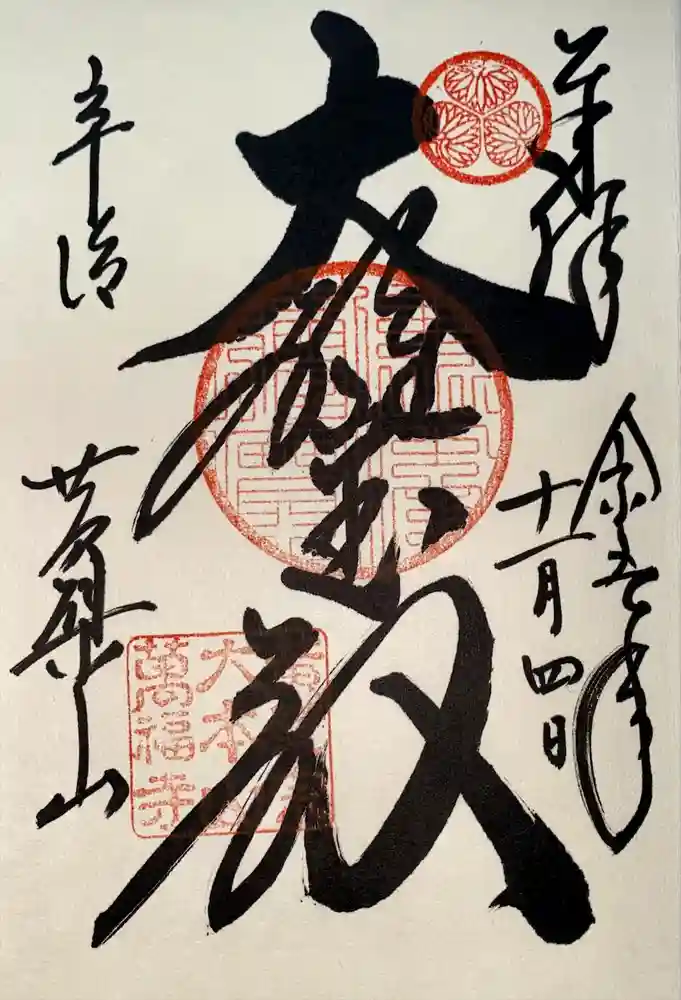 奉拝
令和五年
十二月四日
大雄宝殿
宇治
黄檗山
大本山
萬福寺